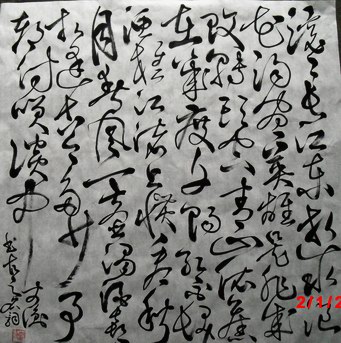 滚滚长江东逝水浪
花淘尽英雄是非成
败转头空青山依旧
在几度夕阳红白发
渔樵江渚上惯看秋
月春风一壶浊酒喜
相逢古今多少事
都付笑谈中
2/1/2